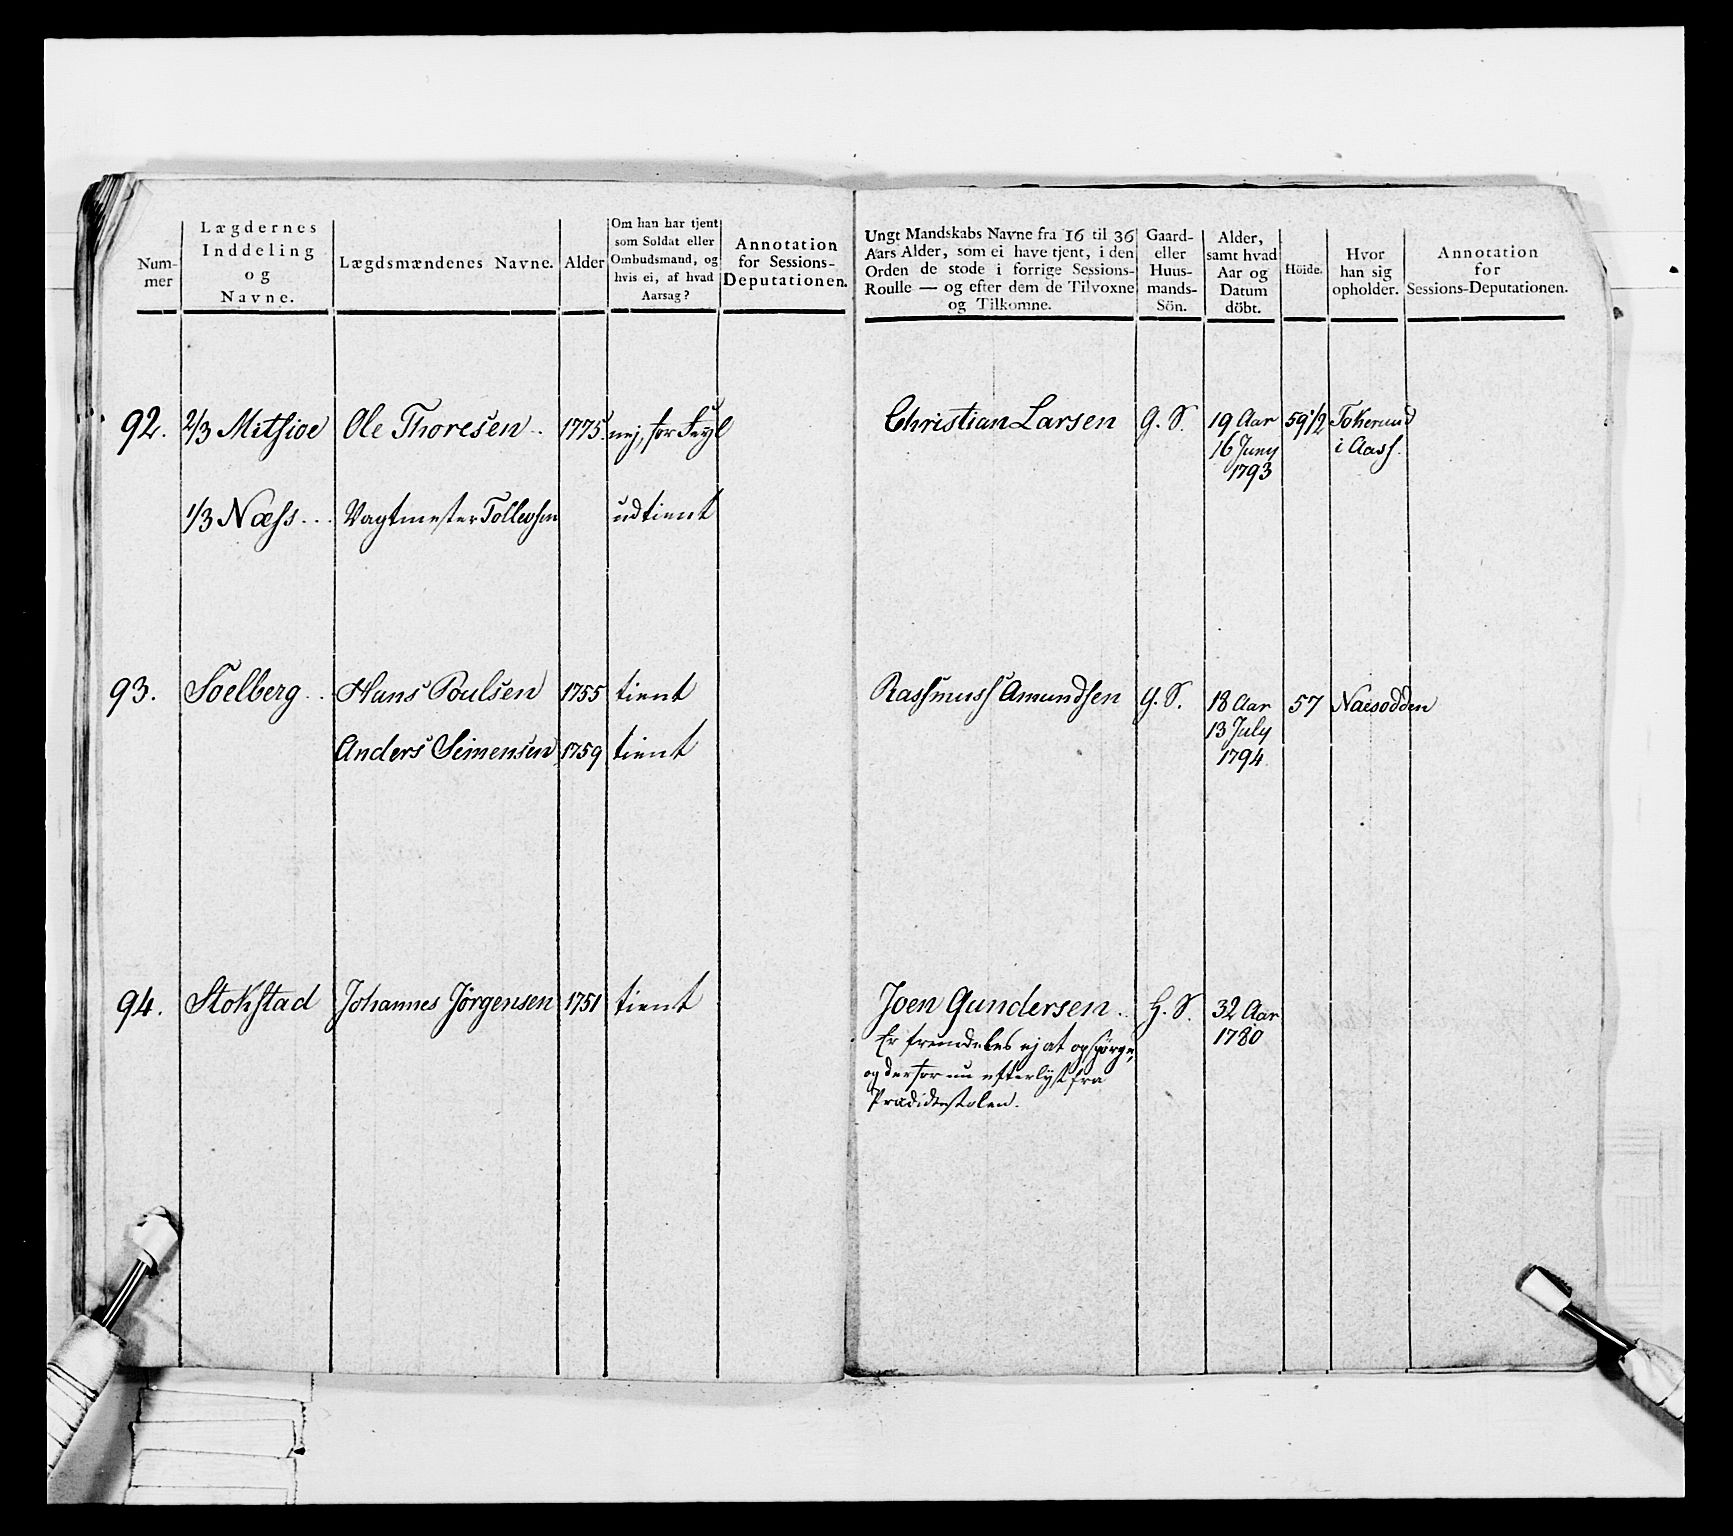 Num-
mer
Lægdernes
Inddeling
og
Navne.
Lægdsmændenes Navne.
Alder
Om han har tjent
som Soldat eller
Ombudsmand, og
hvis ei, af hvad
Aarsag?
Annotation
for Sessions-
Deputationen.
Ungt Mandskabs Navne fra 16 til 36
Aars Alder, som ei have tjent, i den
Orden de stode i forrige Sessions-
Roulle — og efter dem de Tilvoxne
og Tilkomne.
Gaard-
eller
Huus-
mands-
Sön.
Alder,
samt hvad
Aar og
Datum
döbt.
Höide.
Hvor
han sig
opholder.
Annotation
for
Sessions-Deputationen.
92. 2/3 Mitsioe Ole Thoresen.. 1775 nej, for Feyl
1/3 Næss... Vagtmester Tollevsen udtient
93. Soelberg.. Hans Poulsen 1755 tient
Anders Seimensen 1759 tient
94. Stokstad Johannes Jørgensen 1751 tient
Christian Larsen G. S. 19 Aar 59 1/2 Tokerud
16 Juny i Aass.
1793
Rassmuss Amundsen G. S. 18 Aar 57 Naesodden
13 July
1794
Joen Gundersen.. H. S. 32 Aar
1780
Er fremdeles ej at opspørge,
og derfor nu efterlyst fra
Prædikestolen.